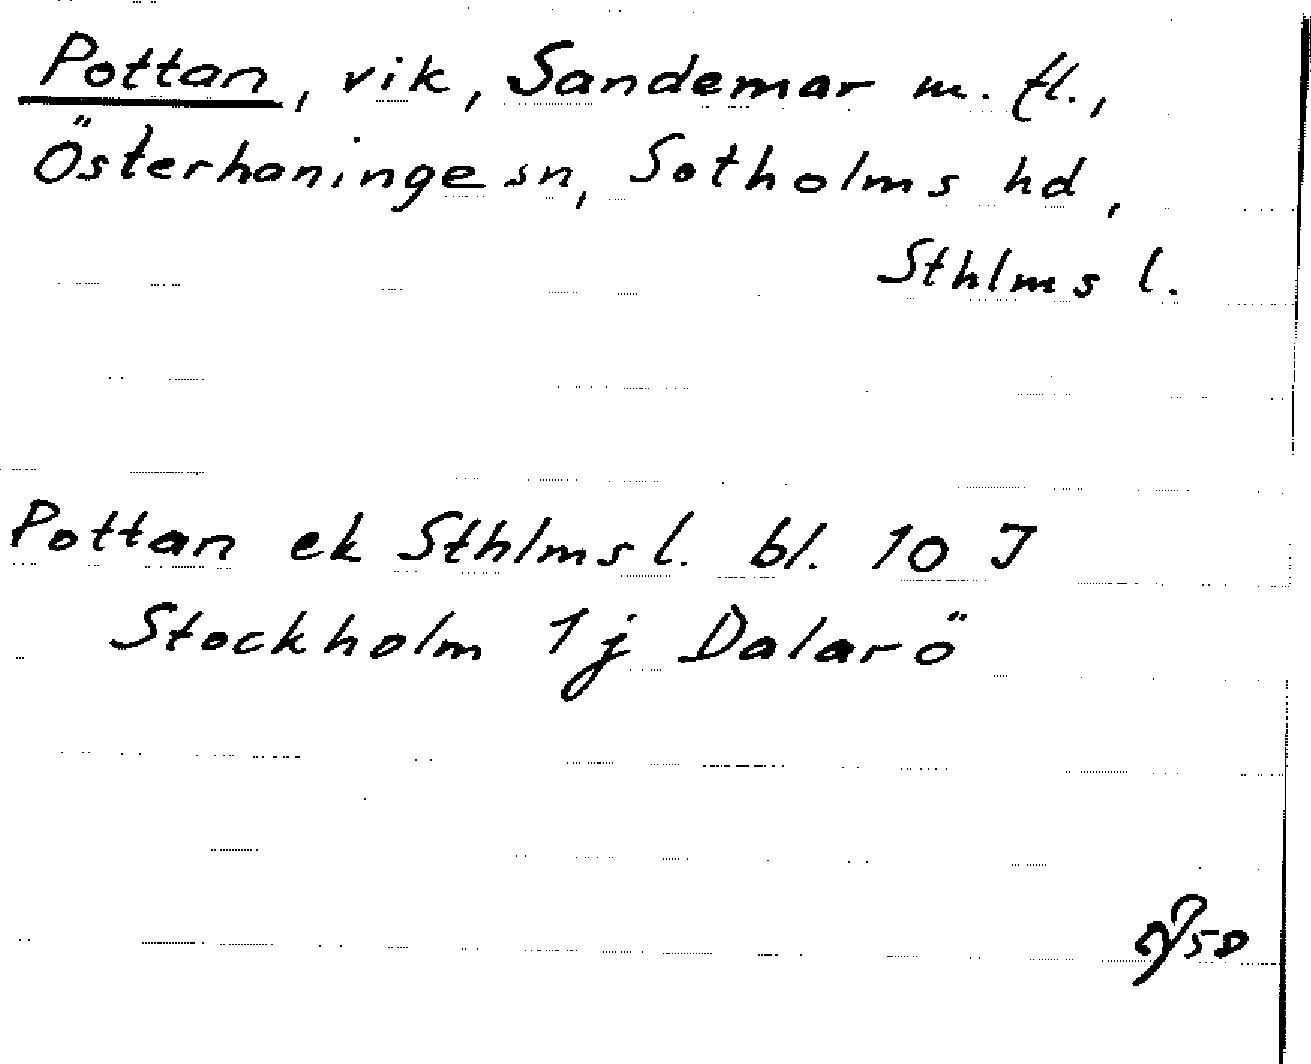 Pottan, vik, Sandemar m. fl.,
Österhaninge sn, Sotholms hd,
Sthlms l.
Pottan ek Sthlms l. bl. 10 J
Stockholm 1j Dalarö